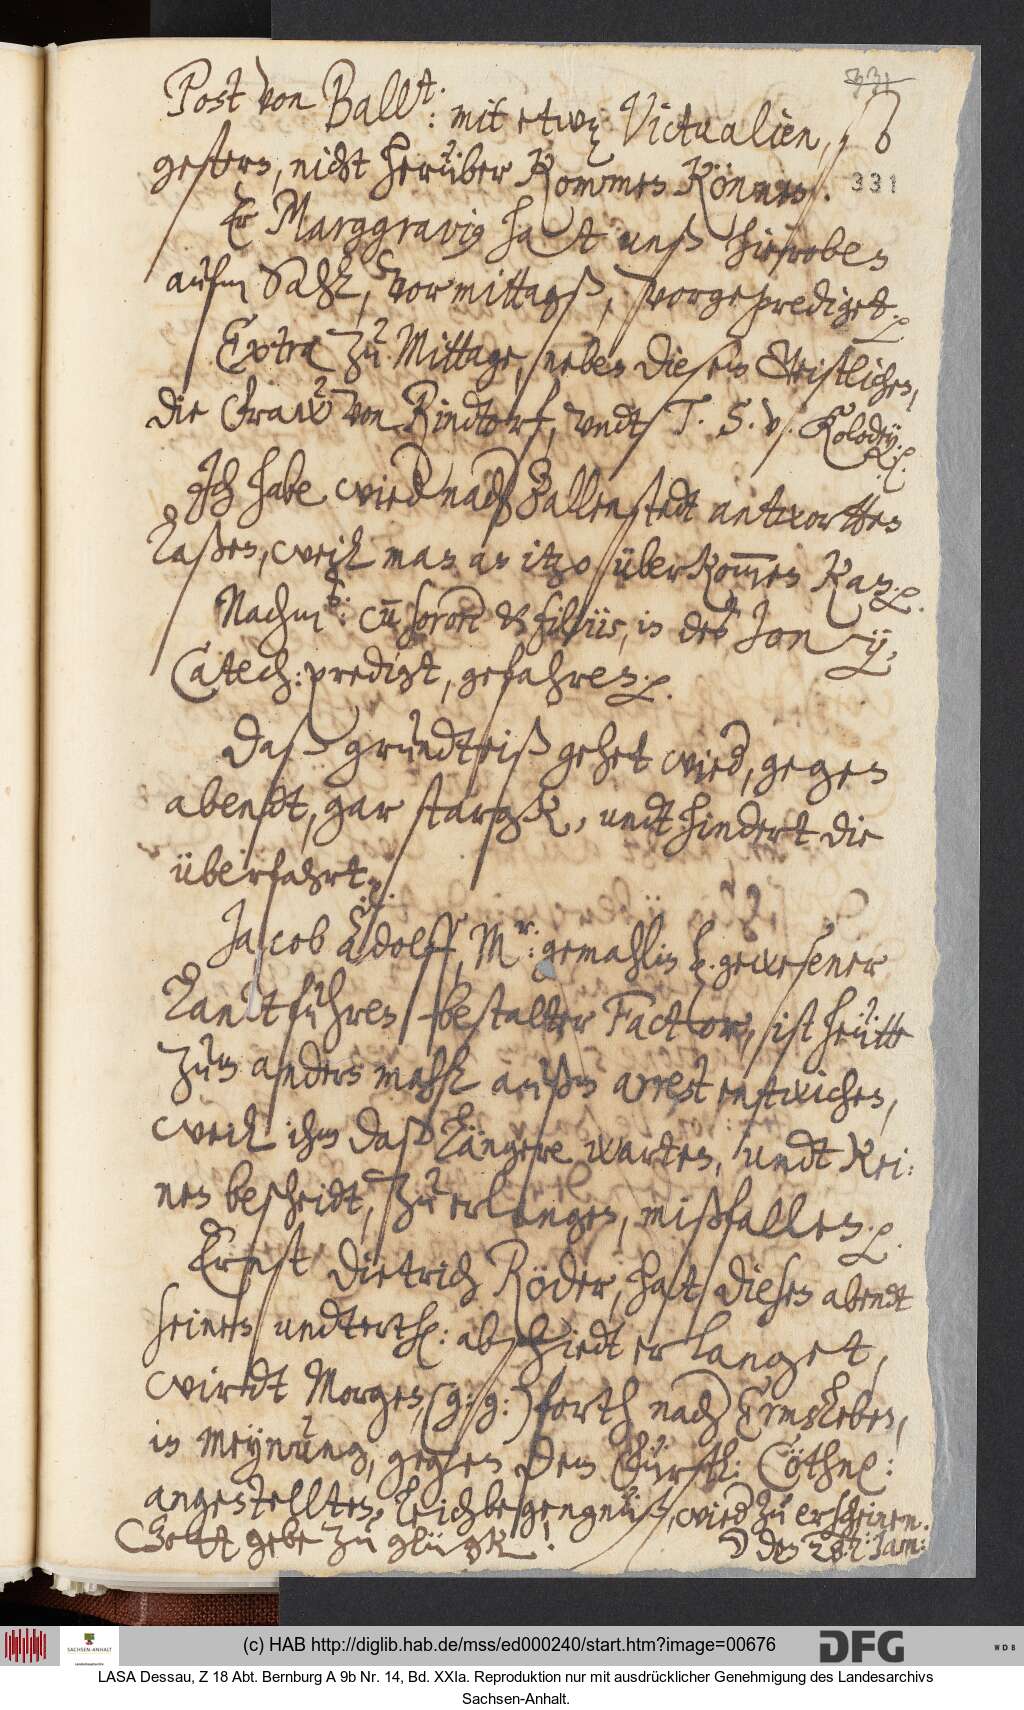 331
Post von Ball:t mit etwaß Victualien, so
gestern, nicht herüber Kommen Können.
331
Er Marggravius hat unß hieroben
aufm Sahl, vormittagß, vorgeprediget. p
Extra zu Mittage, neben diesem Geistlichen,
die Fraw von Bindtorf, undt T. S. v. Kolodey. p
Ich habe wieder nach Ballenstedt antwortten
laßen, weil man an itzo überkommen Kan. p
Nachmittags: cum sorore et filiis, in des Jonij,
Catech: predigt, gefahren. p
Daß grundteiß gehet wieder, gegen
abendt, gar stargk, undt hindert die
überfahrt. p
Jacob Adolff, Mr: gemahlin L. gewesener
Landtfuhren bestalter Factor, ist heütt
zum andern mahl außm arrest entwichen,
weil ihm daß längere warten, undt Kei:
nen bescheidt, zu erlangen, mißfallen. p
Ernst Dietrich Röder, hat diesen abendt
seinen undterth: abschiedt erlanget,
wirdt Morgen, (g: g:) forth nach Ermsleben,
in meynung, gegen dem Fürstl: Cöthn:
angestellten Leichbegengnüß, wieder zu erscheinen.
Gott gebe zu glügk!
☽ den 28. Jan:
(c) HAB http://diglib.hab.de/mss/ed000240/start.htm?image=00676
SACHSEN-ANHALT
DFG
WDB
LASA Dessau, Z 18 Abt. Bernburg A 9b Nr. 14, Bd. XXIa. Reproduktion nur mit ausdrücklicher Genehmigung des Landesarchivs
Sachsen-Anhalt.